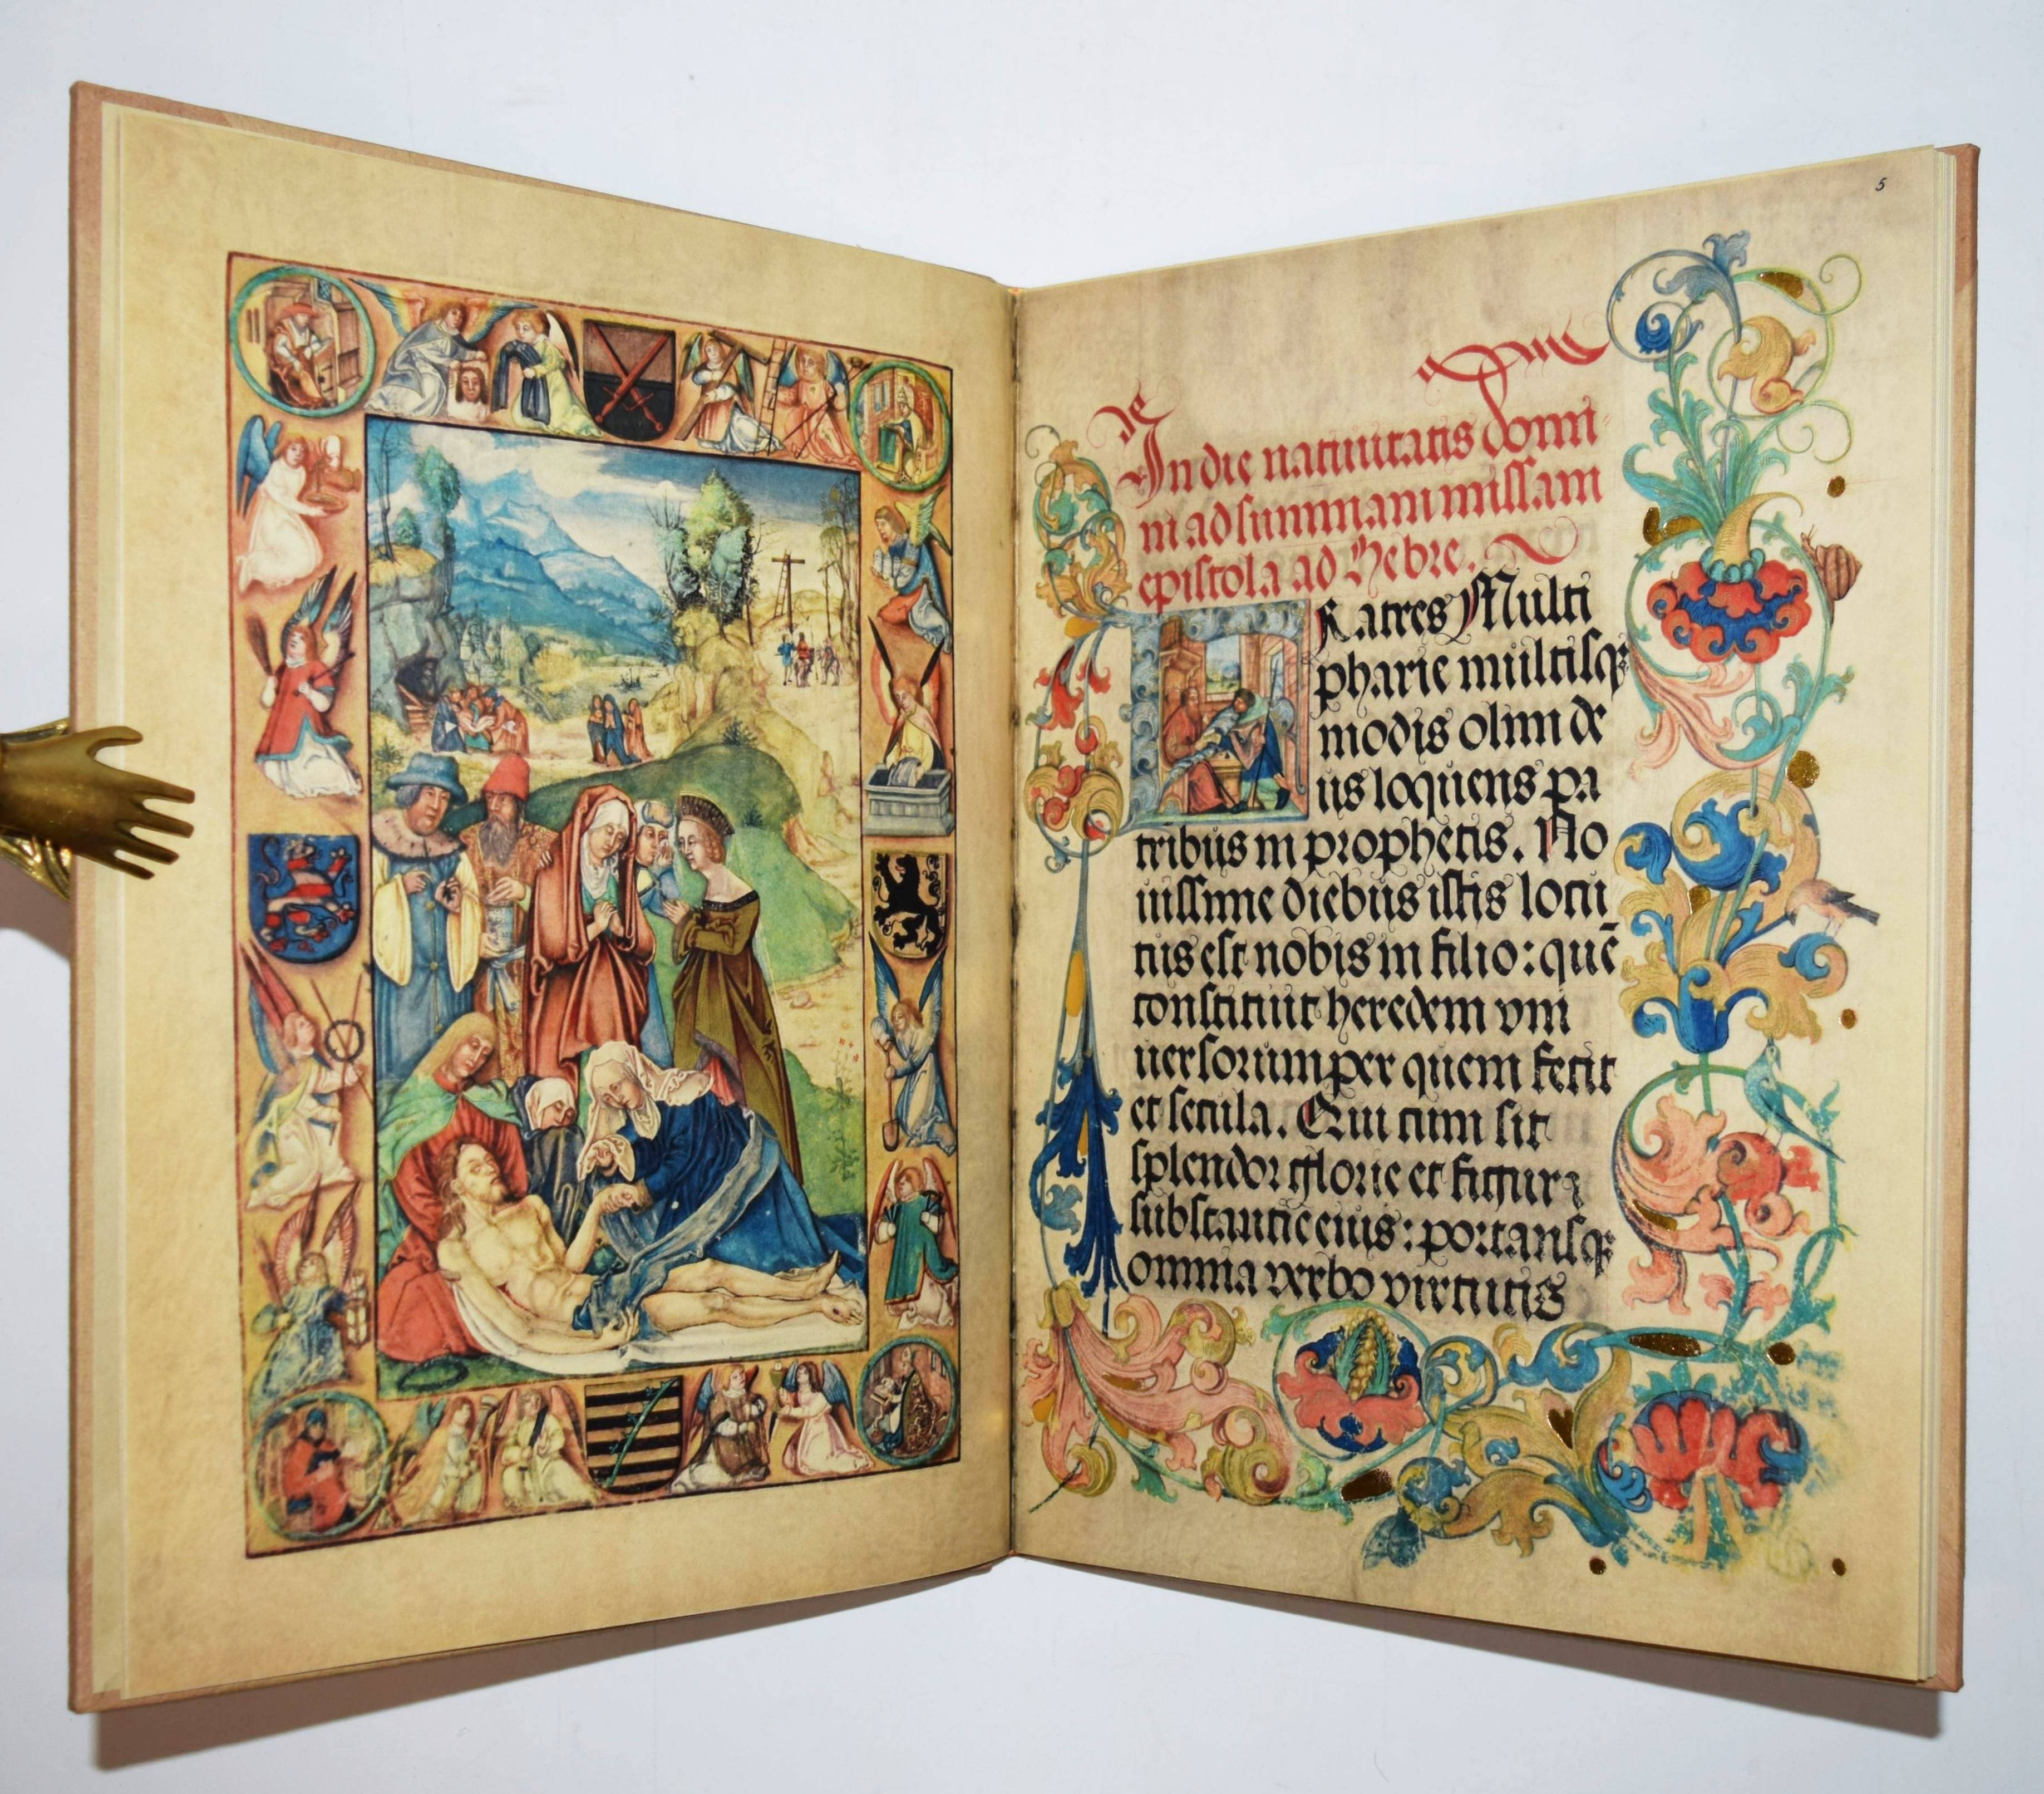 5
In die natiuitatis domi-
ni ad summam missam
epistola ad Hebre.
Fratres Multi
pharie multisqꝫ
modis olim de
us loquens pa
tribus in prophetis. No
uissime diebus istis locu
tus est nobis in filio: quē
constituit heredem vni
uersorum per quem fecit
et secula. Qui cum sit
splendor glorie et figura
substantie eius: portansqꝫ
omnia verbo virtutis